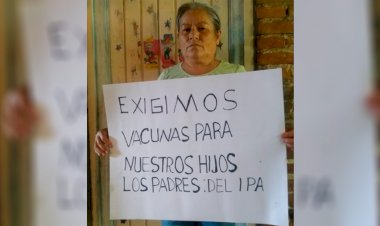 EXIGIMOS
VACUNAS PARA
NUESTROS HIJOS
LOS PADRES:DEL IPA